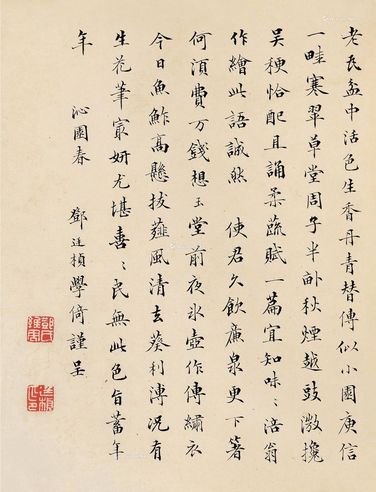 老瓦盆中活色生香丹青替傳似小園庾信
一畦寒翠草堂周子半畝秋煙越豉微攙
吳粳恰配且誦柔蔬賦一篇宜知味〻涪翁
作繪此語誠然 使君久飲廉泉更下箸
何須費万錢想玉堂前夜氷壺作傳繡衣
今日魚鮓髙懸拔薤風清去葵利溥況有
生花筆㝡妍尤堪喜〻民無此色旨蓄年
年
沁園春 鄧廷楨學倚謹呈